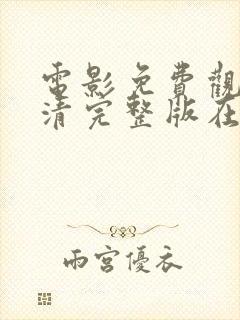 電影免費觀
清完整版在
雨宮優衣